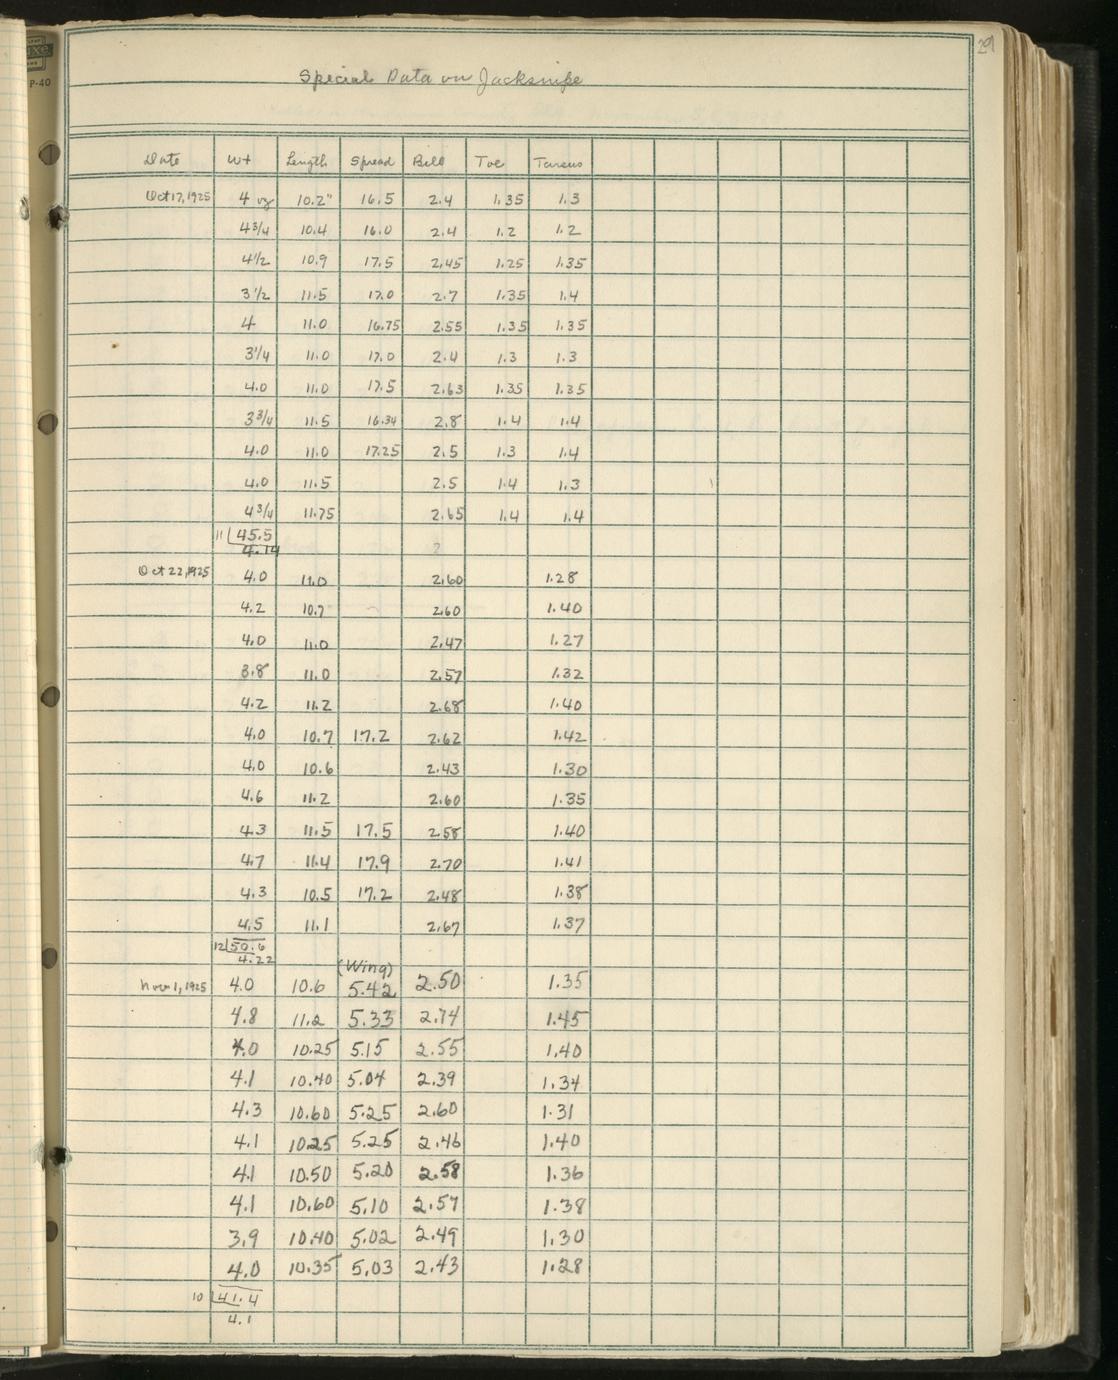 29
Special Data on Jacksnipe
Date Wt Length Spread Bill Toe Tarsus
Oct 17, 1925 4 oz 10.2" 16.5 2.4 1.35 1.3
4 3/4 10.4 16.0 2.4 1.2 1.2
4 1/2 10.9 17.5 2.45 1.25 1.35
3 1/2 11.5 17.0 2.7 1.35 1.4
4 11.0 16.75 2.55 1.35 1.35
3 1/4 11.0 17.0 2.4 1.3 1.3
4.0 11.0 17.5 2.63 1.35 1.35
3 3/4 11.5 16.34 2.8 1.4 1.4
4.0 11.0 17.25 2.5 1.3 1.4
4.0 11.5 2.5 1.4 1.3
4 3/4 11.75 2.65 1.4 1.4
11 | 45.5
4.14 2
Oct 22, 1925 4.0 11.0 2.60 1.28
4.2 10.7 2.60 1.40
4.0 11.0 2.47 1.27
3.8 11.0 2.57 1.32
4.2 11.2 2.68 1.40
4.0 10.7 17.2 2.62 1.42
4.0 10.6 2.43 1.30
4.6 11.2 2.60 1.35
4.3 11.5 17.5 2.58 1.40
4.7 11.4 17.9 2.70 1.41
4.3 10.5 17.2 2.48 1.38
4.5 11.1 2.67 1.37
12 | 50.6
4.22
(Wing)
Nov 1, 1925 4.0 10.6 5.42 2.50 1.35
4.8 11.2 5.33 2.74 1.45
4.0 10.25 5.15 2.55 1.40
4.1 10.40 5.04 2.39 1.34
4.3 10.60 5.25 2.60 1.31
4.1 10.25 5.25 2.46 1.40
4.1 10.50 5.20 2.58 1.36
4.1 10.60 5.10 2.57 1.38
3.9 10.40 5.02 2.49 1.30
4.0 10.35 5.03 2.43 1.28
10 | 41.4
4.1
P-40